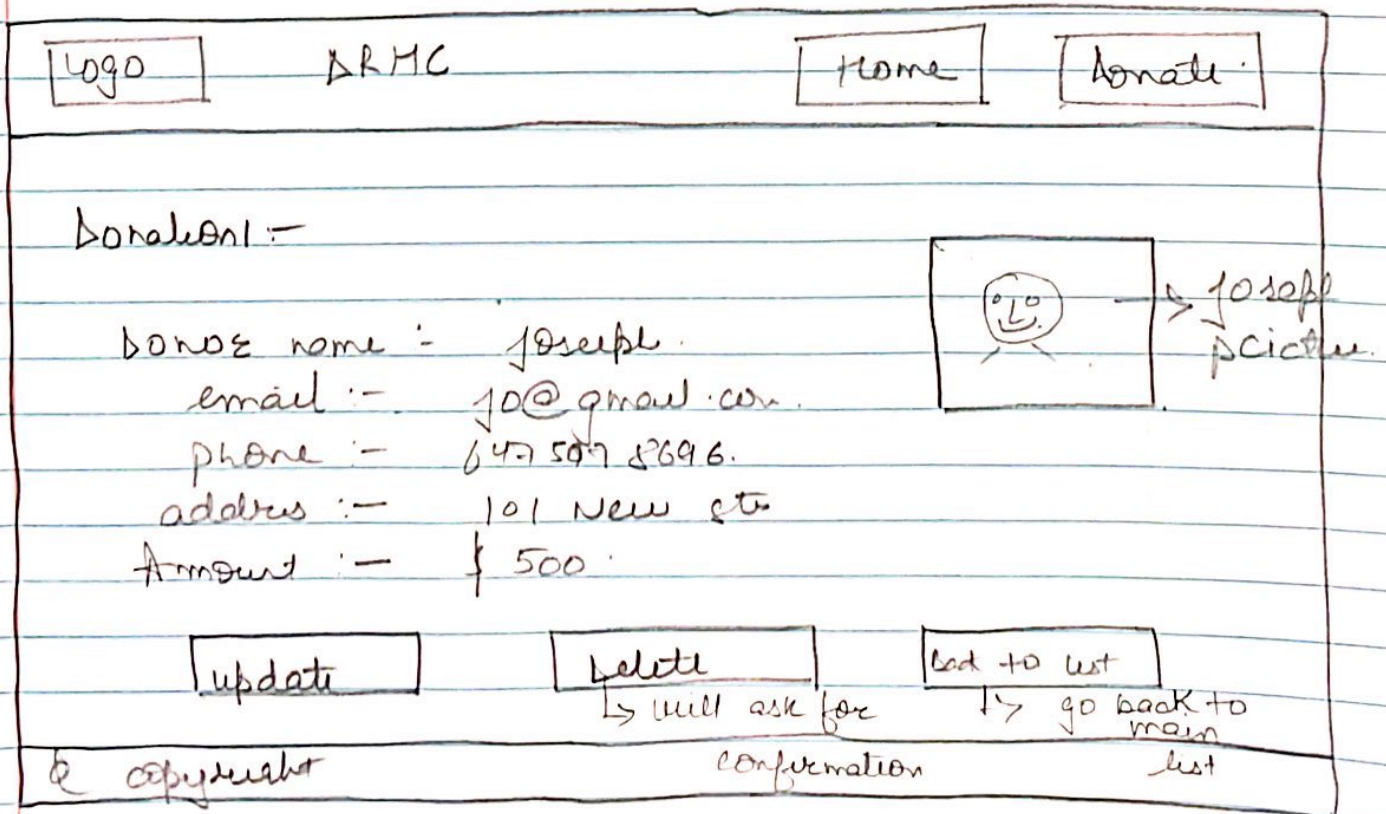 Logo DRMC Home Donate
Donation1 :-
Donor name :- Joseph
email :- jo@gmail.com
phone :- 647 8696.
addres :- 101 New str
Amount :- $ 500
Joseph
pcictu.
update Delete back to list
↳ will ask for confirmation
↳ go back to main list
© copyright